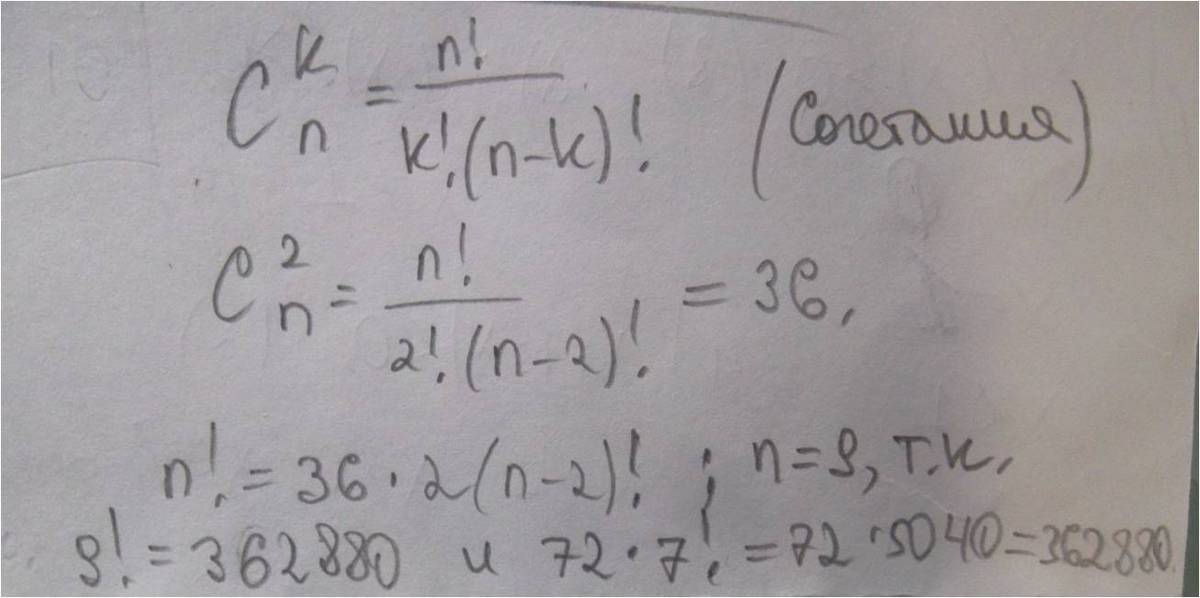 C_n^k = n! / k!(n-k)! (Сочетания)
C_n^2 = n! / 2!(n-2)! = 36,
n! = 36 · 2(n-2)! ; n=9, т.к.
9! = 362880 и 72·7! = 72·5040=362880.